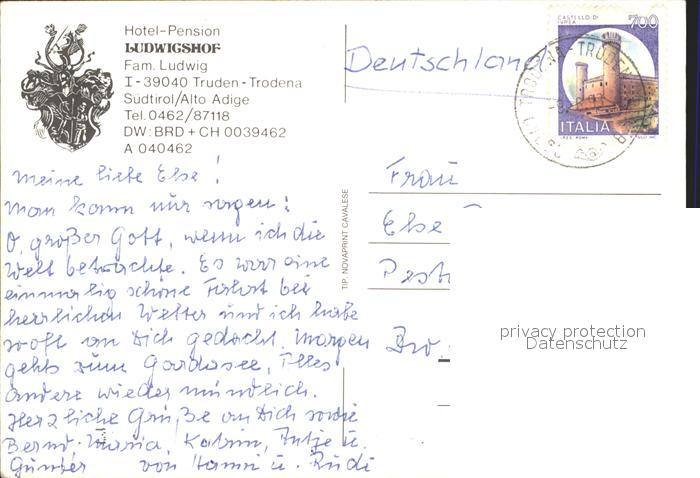 Hotel-Pension
LUDWIGSHOF
Fam. Ludwig
I-39040 Truden-Trodena
Südtirol/Alto Adige
Tel. 0462/87118
DW: BRD + CH 0039462
A 040462
Deutschland
CASTELLO DI IVREA
700
ITALIA
TRODENA - TRUDEN
Meine liebe Else!
Man kann nur sagen:
O, großer Gott, wenn ich die
Welt betrachte. Es war eine
einmalig schöne Fahrt bei
herrlichen Wetter und ich habe
oft an Dich gedacht. Morgen
gehts zum Gardasee, Alles
andere wieder mündlich.
Herzliche Grüße an Dich sowie
Bernd, Maria, Katrin, Antje u.
Günter von Hanni u. Rudi
TIP. NOVAPRINT CAVALESE
Frau
Else
privacy protection
Datenschutz